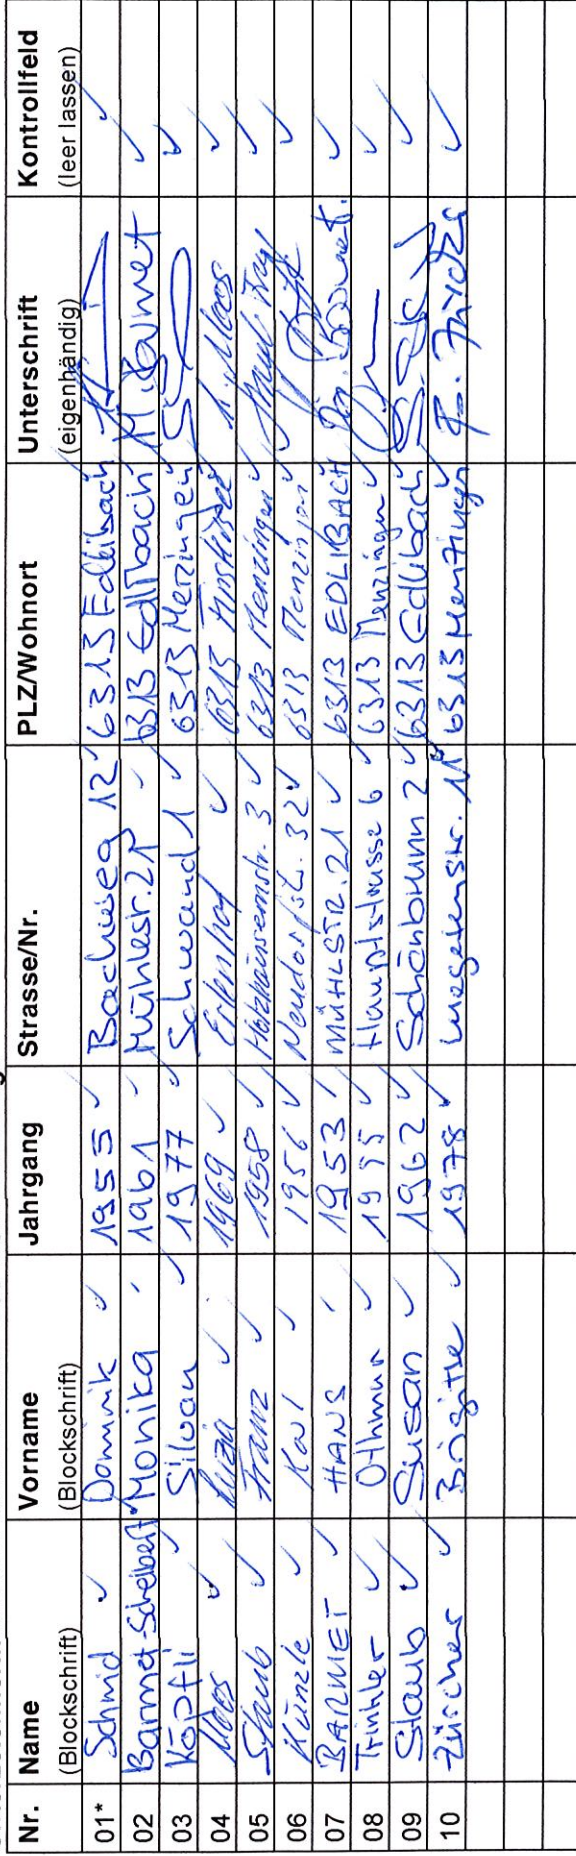 Nr. Name (Blockschrift) Vorname (Blockschrift) Jahrgang Strasse/Nr. PLZ/Wohnort Unterschrift (eigenhändig) Kontrollfeld (leer lassen)
01* Schmid Dominik 1955 Bachweg 12 6313 Edlibach
02 Barmet-Schelbert Monika 1961 Mühlestr. 21 6313 Edlibach M. Barmet
03 Köpfli Silvan 1977 Schwand 1 6313 Menzingen
04 Moos Luzia 1969 Erlenhof 6313 L. Moos
05 Staub Franz 1958 Holzhäusernstr. 3 6313 Menzingen
06 Künzle Karl 1956 Neudorfstr. 32 6313 Menzingen
07 BARMET HANS 1953 MÜHLSTR. 21 6313 EDLIBACH
08 Trinkler Othmar 1955 Hauptstrasse 6 6313 Menzingen
09 Staub Susan 1962 Schönbrunn 2 6313 Edlibach
10 Zürcher Brigitte 1978 6313 Menzingen B. Zürcher